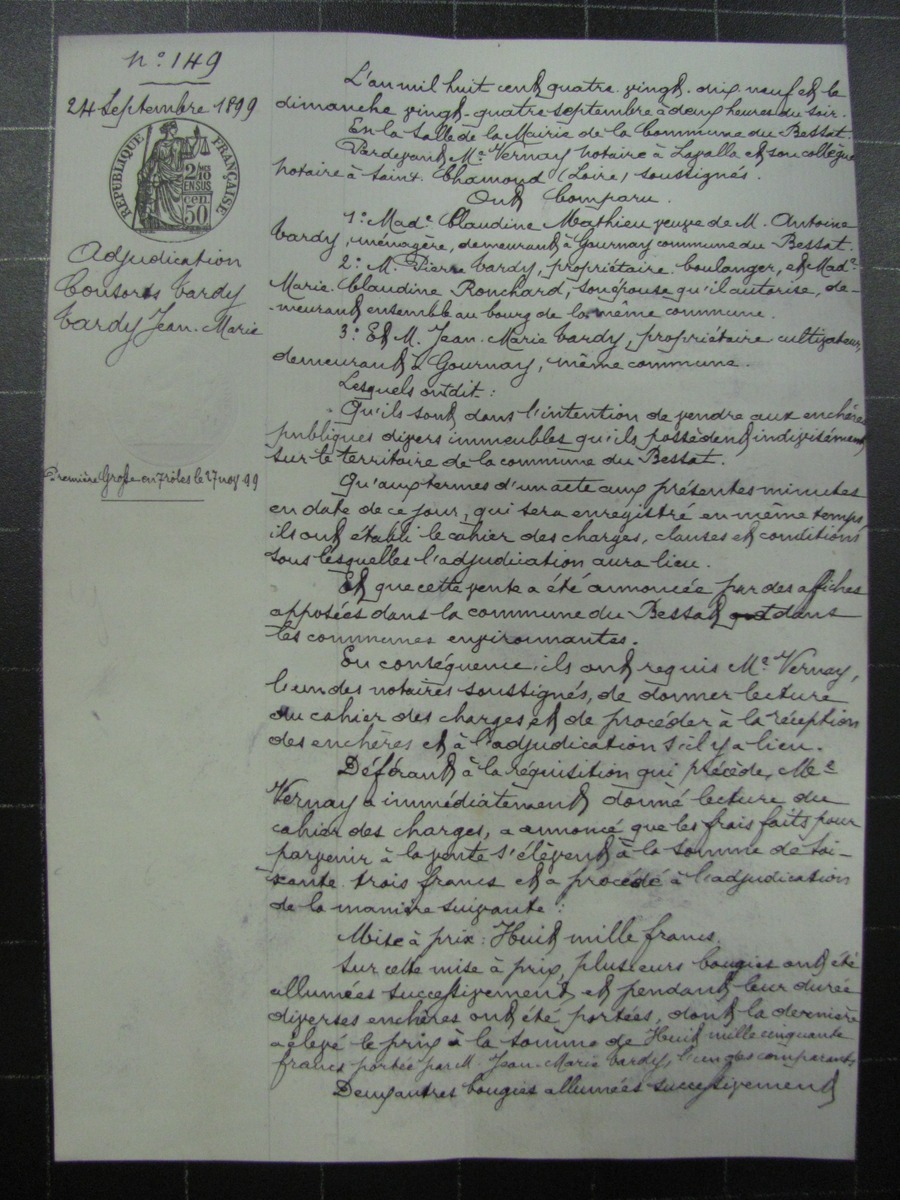 N° 149
24 Septembre 1899
RÉPUBLIQUE FRANÇAISE
2/10 EN SUS
50 cen.
Adjudication
Consorts Tardy
Tardy Jean-Marie
Première Grosse en 7 rôles le 27 nov 99
L'an mil huit cent quatre vingt-dix neuf et le
dimanche vingt-quatre septembre à deux heures du soir.
En la Salle de la Mairie de la Commune du Bessat
Pardevant Me Vernay notaire à Lavalla et son collègue
notaire à Saint-Chamond (Loire) soussignés.
Ont Comparu.
1° Made Claudine Mathieu veuve de M. Antoine
Tardy, ménagère, demeurant à Gournay commune du Bessat.
2° M. Pierre Tardy, propriétaire boulanger, et Made
Marie-Claudine Ronchard, son épouse qu'il autorise, de-
-meurant ensemble au bourg de la même commune.
3° Et M. Jean-Marie Tardy, propriétaire cultivateur,
demeurant à Gournay, même commune.
Lesquels ont dit:
Qu'ils sont dans l'intention de vendre aux enchères
publiques divers immeubles qu'ils possèdent indivisément
sur le territoire de la commune du Bessat.
Qu'aux termes d'un acte aux présentes minutes
en date de ce jour, qui sera enregistré en même temps,
ils ont établi le cahier des charges, clauses et conditions
sous lesquelles l'adjudication aura lieu.
Et que cette vente a été annoncée par des affiches
apposées dans la commune du Bessat et dans
les communes environnantes.
En conséquence, ils ont requis Me Vernay,
l'un des notaires soussignés, de donner lecture
du cahier des charges et de procéder à la réception
des enchères et à l'adjudication s'il y a lieu.
Déférant à la réquisition qui précède, Me
Vernay a immédiatement donné lecture du
cahier des charges, a annoncé que les frais faits pour
parvenir à la vente s'élèvent à la somme de soi-
-xante trois francs et a procédé à l'adjudication
de la manière suivante:
Mise à prix: Huit mille francs.
Sur cette mise à prix, plusieurs bougies ont été
allumées successivement et pendant leur durée
diverses enchères ont été portées, dont la dernière
a élevé le prix à la somme de Huit mille cinquante
francs portée par M. Jean-Marie Tardy, l'un des comparants.
Deux autres bougies allumées successivement